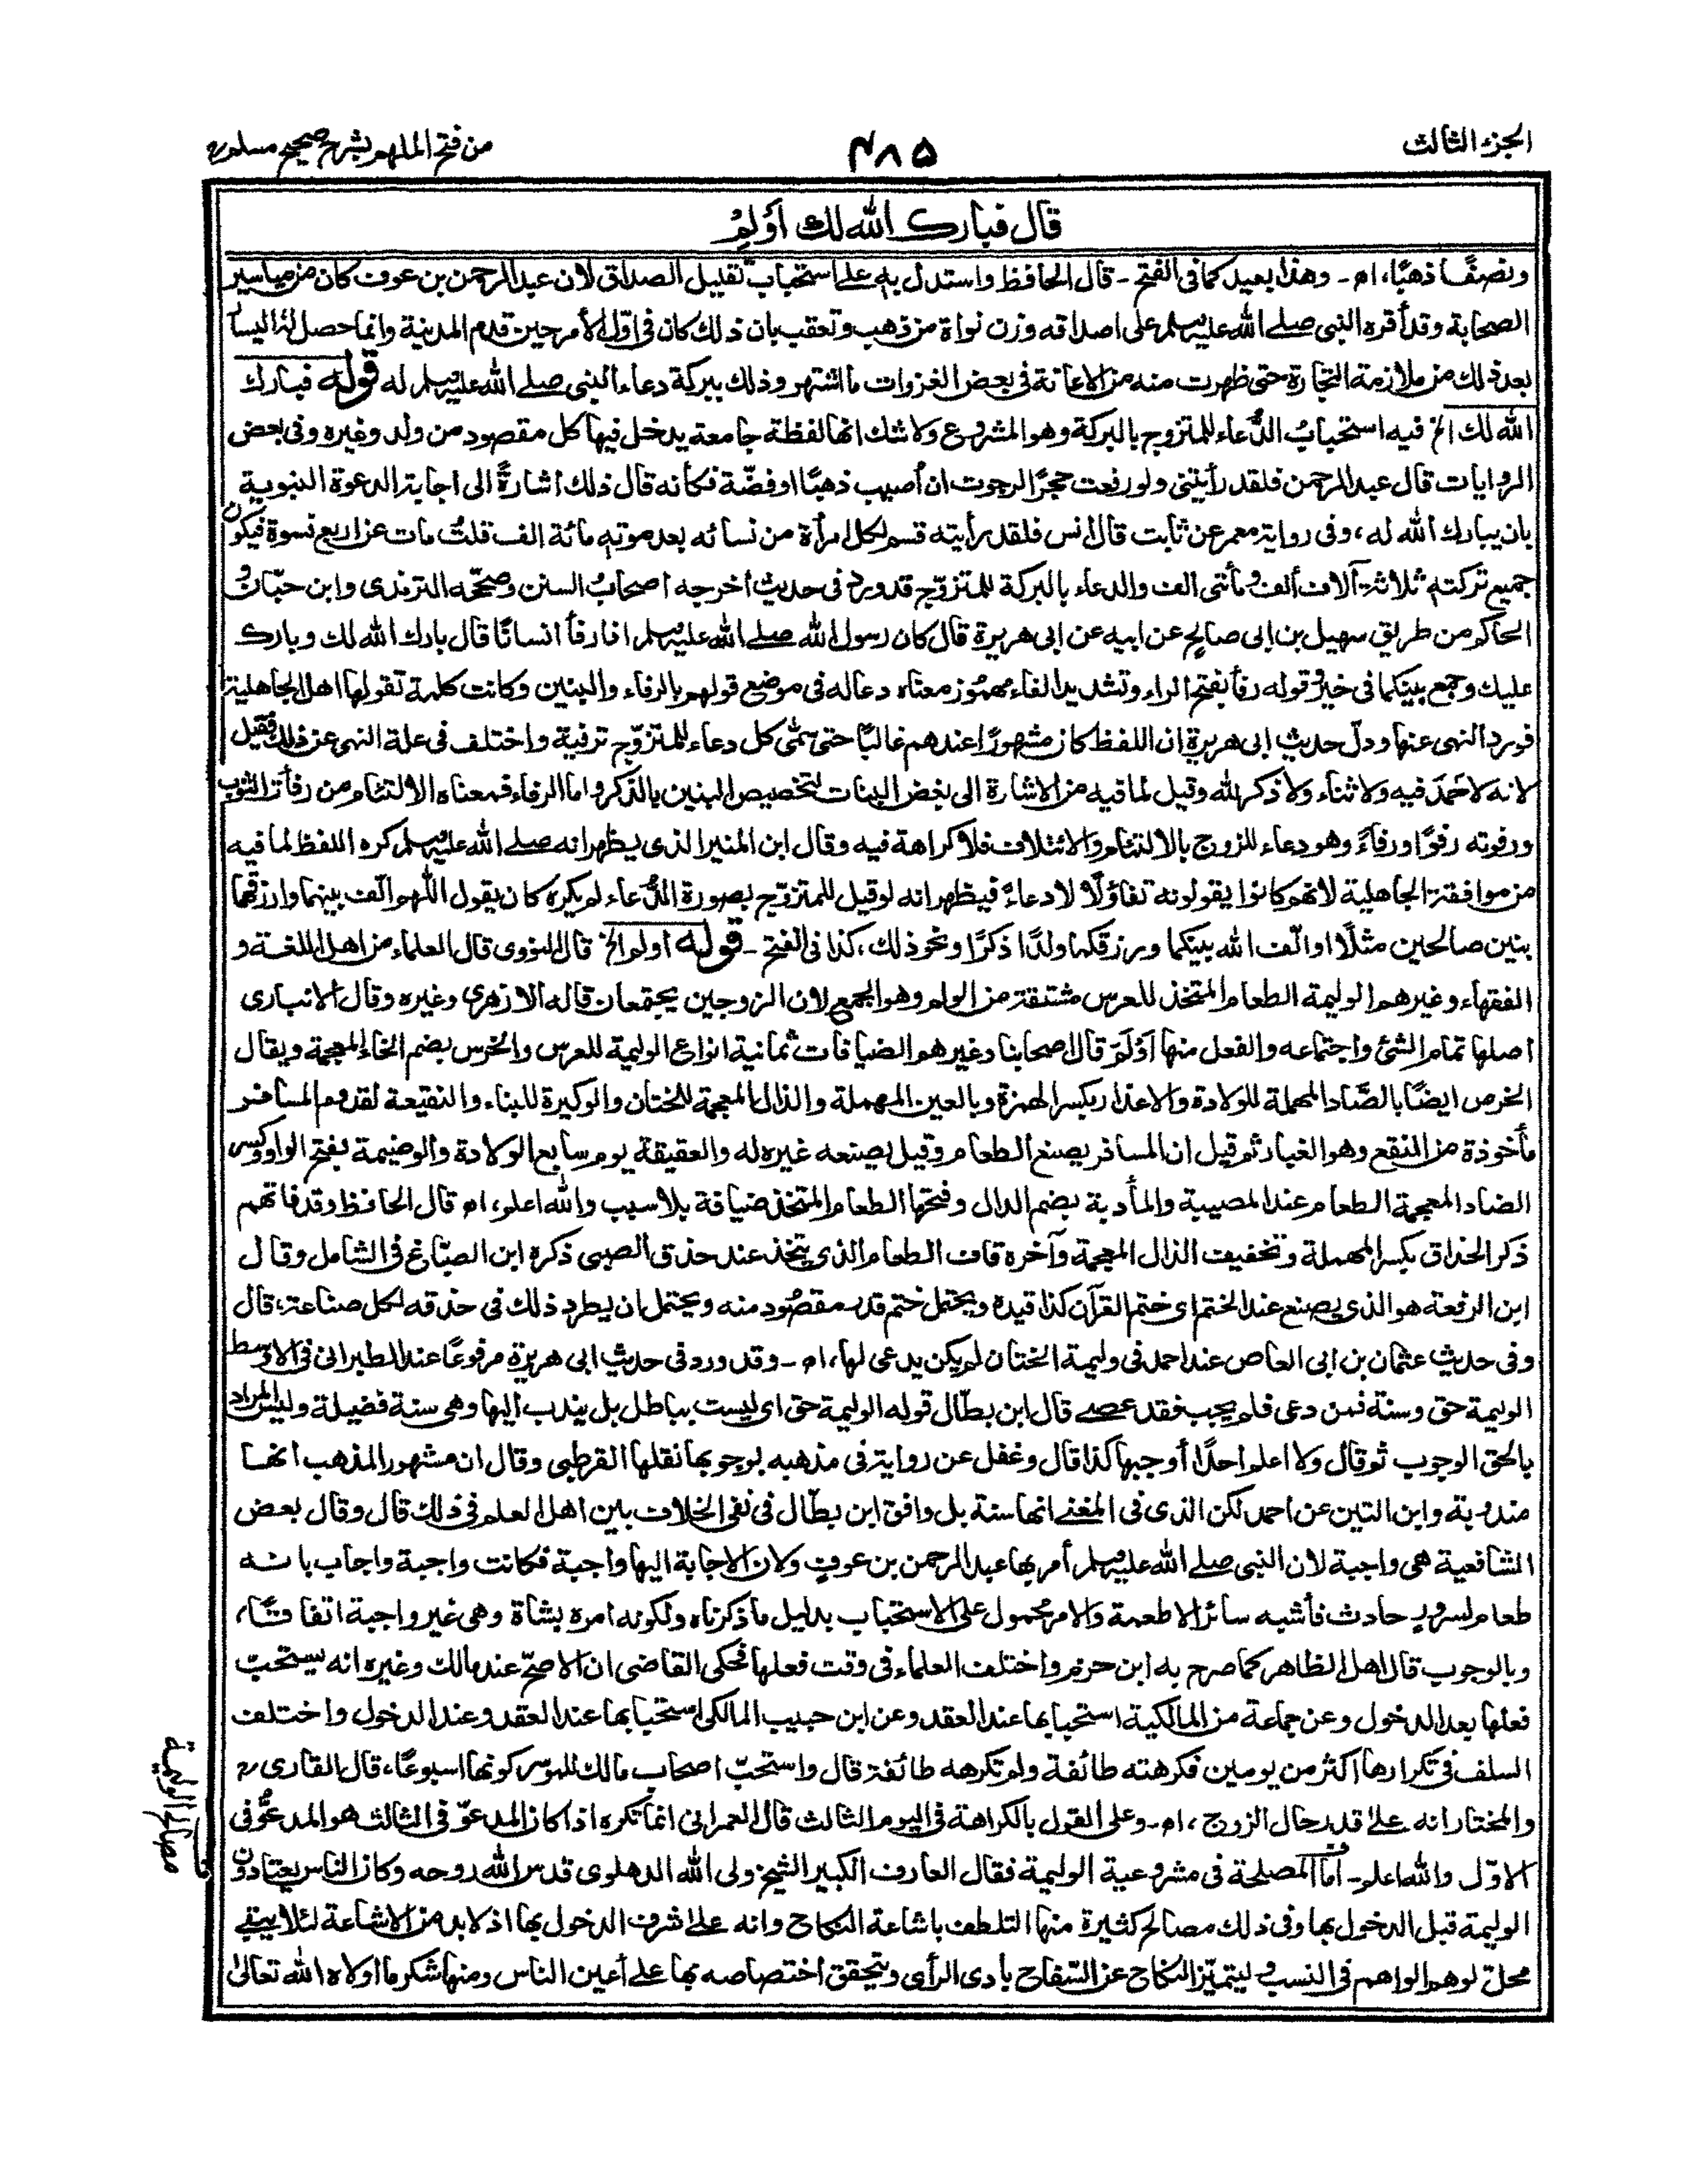 الجزء الثالث
٤٨٥
من فتح الملهم بشرح صحيح مسلم
قال فبارك الله لك أَوْلِمْ
ونصفًا ذهبًا، اه - وهذا بعيد كما فى الفتح - قال الحافظ واستدل به على استحباب تقليل الصداق لان عبد الرحمن بن عوف كان من مياسير
الصحابة وقد أقره النبى صلے الله عليه وسلم على اصداقه وزن نواة من ذهب وتعقب بان ذلك كان فى اوّل الأمر حين قدم المدينة وانما حصل له اليسار
بعد ذلك من ملازمة التجارة حتى ظهرت منه من الاعانة فى بعض الغزوات ما اشتهر وذلك ببركة دعاء النبى صلے الله عليه وسلم له قوله فبارك
الله لك الخ فيه استحبابُ الدُّعاء للمتزوج بالبركة وهو المشروع ولا شك انها لفظة جامعة يدخل فيها كل مقصود من ولد وغيره وفى بعض
الروايات قال عبد الرحمن فلقد رأيتنى ولو رفعت حجرًا لرجوت ان أصيب ذهبًا او فضّة فكأنه قال ذلك اشارةً الى اجابة الدعوة النبوية
بان يبارك الله له، وفى رواية معمر عن ثابت قال انس فلقد رأيته قسم لكل امرأة من نسائه بعد موته مائة الف قلتُ مات عن اربع نسوة فيكون
جميع تركته ثلاثة آلاف ألف ومأتى الف والدعاء بالبركة للمتزوّج قد ورد فى حديث أخرجه اصحابُ السنن وصحّحه الترمذى وابن حبّان و
الحاكم من طريق سهيل بن ابى صالحٍ عن ابيه عن ابى هريرة قال كان رسول الله صلے الله عليه وسلم اذا رفأ انسانًا قال بارك الله لك وبارك
عليك وجمع بينكما فى خير وقوله رفأ بفتح الراء وتشديد الفاء مهمُوز معناه دعا له فى موضع قولهم بالرفاء والبنين وكانت كلمة تقولها اهل الجاهلية
فورد النهى عنها ودلّ حديث ابى هريرة ان اللفظ كان مشهورًا عندهم غالبًا حتى سمّى كل دعاء للمتزوّج ترفية واختلف فى علة النهى عن ذلك فقيل
لانه لا حَمدَ فيه ولا ثناء ولا ذكر لله وقيل لما فيه من الاشارة الى بغض البنات لتخصيص البنين بالذّكر واما الرفاء فمعناه الالتئام من رفأت الثوب
ورفوته رفوًا ورفاءً وهو دعاء للزوج بالالتئام والائتلاف فلا كراهة فيه وقال ابن المنير الذى يظهر انه صلے الله عليه وسلم كره اللفظ لما فيه
من موافقة الجاهلية لانهم كانوا يقولونه تفاؤلًا لا دعاءً فيظهر انه لو قيل للمتزوّج بصورة الدُّعاء لم يكره كان يقول اللّٰهم الّف بينهما وارزقهما
بنين صالحين مثلًا او الّف الله بينكما ورزقكما ولدًا ذكرًا ونحو ذلك، كذا فى الفتح - قوله اولم الخ قال النووى قال العلماء من اهل اللغة و
الفقهاء وغيرهم الوليمة الطعام المتخذ للعرس مشتقة من الولم وهو الجمع لان الزوجين يجتمعان قاله الازهرى وغيره وقال الانبارى
اصلها تمام الشئ واجتماعه والفعل منها أَوْلَمَ قال اصحابنا وغيرهم الضيافات ثمانية انواع الوليمة للعرس والخرس بضم الخاء المعجمة ويقال
الخرص ايضًا بالصَّاد المهملة للولادة والاعذار بكسر الهمزة وبالعين المهملة والذال المعجمة للختان والوكيرة للبناء والنقيعة لقدوم المسافر
مأخوذة من النقع وهو الغبار ثم قيل ان المسافر يصنع الطعام وقيل يصنعه غيره له والعقيقة يوم سابع الولادة والوضيمة بفتح الواو وكسر
الضاد المعجمة الطعام عند المصيبة والمأدبة بضم الدال وفتحها الطعام المتخذ ضيافة بلا سبب والله اعلم، اه قال الحافظ وقد فاتهم
ذكر الحذاق بكسر المهملة وتخفيف الذال المعجمة وآخره قاف الطعام الذى يتخذ عند حذق الصبى ذكره ابن الصبّاغ فى الشامل وقال
ابن الرفعة هو الذى يصنع عند الختم اى ختم القرآن كذا قيده ويحتمل ختم قدر مقصُود منه ويحتمل ان يطرد ذلك فى حذقه لكل صناعة، قال
وفى حديث عثمان بن ابى العاص عند احمد فى وليمة الختان لم يكن يدعى لها، اه - وقد ورد فى حديث ابى هريرة مرفوعًا عند الطبرانى فى الاوسط
الوليمة حق وسنة فمن دعى فلم يجب فقد عصے قال ابن بطّال قوله الوليمة حق اى ليست بباطل بل يندب اليها وهى سنة فضيلة وليس المراد
بالحق الوجوب ثم قال ولا اعلم احدًا أوجبها كذا قال وغفل عن رواية فى مذهبه بوجوبها نقلها القرطبى وقال ان مشهور المذهب انها
مندوبة وابن التين عن احمد لكن الذى فى المغنے انها سنة بل وافق ابن بطّال فى نفى الخلاف بين اهل العلم فى ذلك قال وقال بعض
الشافعية هى واجبة لان النبى صلے الله عليه وسلم أمر بها عبد الرحمن بن عوفٍ ولان الاجابة اليها واجبة فكانت واجبة واجاب بانه
طعام لسرورٍ حادث فأشبه سائر الاطعمة والامر محمول على الاستحباب بدليل ما ذكرناه ولكونه امره بشاة وهى غير واجبة اتفاقًا،
وبالوجوب قال اهل الظاهر كما صرح به ابن حزم واختلف العلماء فى وقت فعلها فحكى القاضى ان الاصحّ عند مالك وغيره انه يستحبّ
فعلها بعد الدخول وعن جماعة من المالكية استحبابها عند العقد وعن ابن حبيب المالكى استحبابها عند العقد وعند الدخول واختلف
السلف فى تكرارها اكثر من يومين فكرهته طائفة ولم تكرهه طائفة قال واستحبّ اصحاب مالك للموسر كونها اسبوعًا، قال القارى
والمختار انه علےٰ قدر حال الزوج، اه - وعلى القول بالكراهة فى اليوم الثالث قال العمرانى انما تكره اذا كان المدعوّ فى الثالث هو المدعُوّ فى
الاوّل والله اعلم - اما المصلحة فى مشروعية الوليمة فقال العارف الكبير الشيخ ولى الله الدهلوى قدس الله روحه وكان الناس يعتادون
الوليمة قبل الدخول بها وفى ذلك مصالح كثيرة منها التلطف باشاعة النكاح وانه علےٰ شرف الدخول بها اذ لا بد من الاشاعة لئلا يبقے
محلّ لوهم الواهم فى النسب وليتميّز النكاح عن السّفاح بادى الرأى ويتحقق اختصاصه بها علے أعين الناس ومنها شكر ما اولاه الله تعالىٰ
مصالح الوليمة